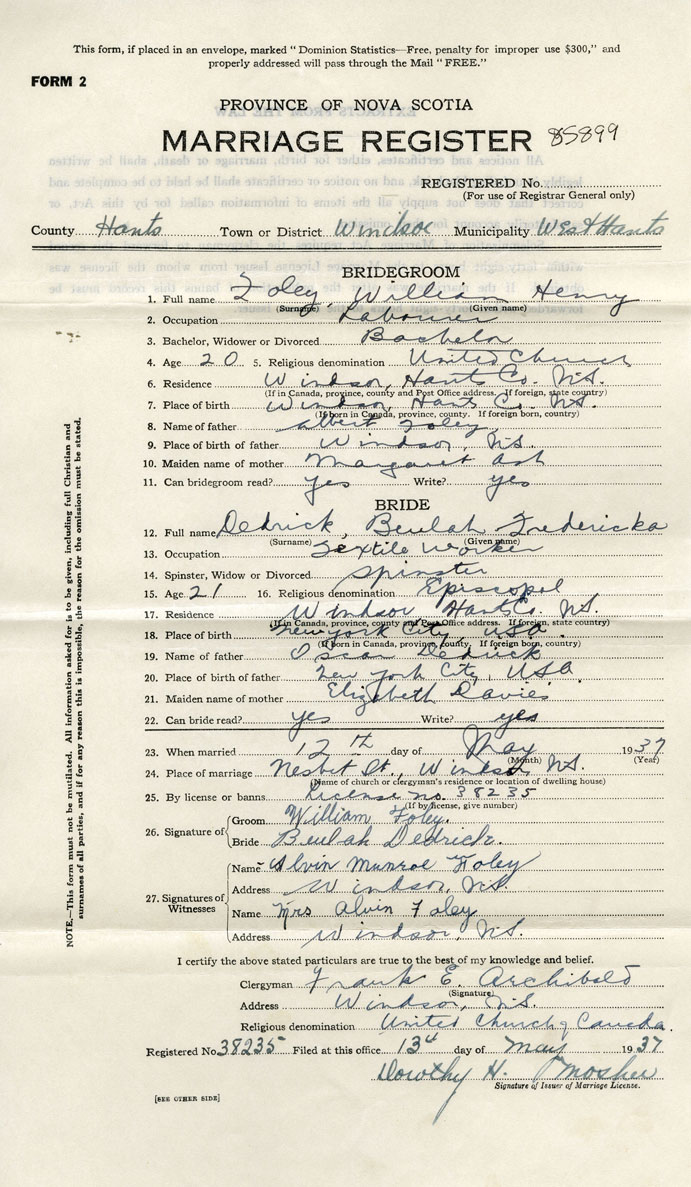 This form, if placed in an envelope, marked "Dominion Statistics—Free, penalty for improper use $300," and
properly addressed will pass through the Mail "FREE."
FORM 2
PROVINCE OF NOVA SCOTIA
MARRIAGE REGISTER 85899
REGISTERED No.
(For use of Registrar General only)
County Hants Town or District Windsor Municipality West Hants
BRIDEGROOM
1. Full name Foley, William Henry
(Surname) (Given name)
2. Occupation Labourer
3. Bachelor, Widower or Divorced Bachelor
4. Age 20 5. Religious denomination United Church
6. Residence Windsor, Hants Co. N.S.
(If in Canada, province, county and Post Office address. If foreign, state country)
7. Place of birth Windsor, Hants Co. N.S.
(If born in Canada, province, county. If foreign born, country)
8. Name of father Albert Foley
9. Place of birth of father Windsor, N.S.
10. Maiden name of mother Margaret Ash
11. Can bridegroom read? yes Write? yes
BRIDE
12. Full name Dedrick, Beulah Fredericka
(Surname) (Given name)
13. Occupation Textile worker
14. Spinster, Widow or Divorced Spinster
15. Age 21 16. Religious denomination Episcopol
17. Residence Windsor, Hants Co. N.S.
(If in Canada, province, county and Post Office address. If foreign, state country)
18. Place of birth New York City, USA.
(If born in Canada, province, county. If foreign born, country)
19. Name of father Oscar Dedrick
20. Place of birth of father New York City, USA.
21. Maiden name of mother Elizabeth Davies
22. Can bride read? yes Write? yes
23. When married 12th day of May 1937
(Month) (Year)
24. Place of marriage Nesbit St., Windsor, N.S.
(Name of church or clergyman's residence or location of dwelling house)
25. By license or banns License no. 38235
(If by license, give number)
26. Signature of Groom William Foley.
Bride Beulah Dedrick.
27. Signatures of Witnesses
Name Alvin Munroe Foley
Address Windsor, N.S.
Name Mrs Alvin Foley
Address Windsor, N.S.
I certify the above stated particulars are true to the best of my knowledge and belief.
Clergyman Frank E. Archibald
(Signature)
Address Windsor, N.S.
Religious denomination United Church of Canada.
Registered No. 38235 Filed at this office 13th day of May 1937
Dorothy H. Mosher
Signature of Issuer of Marriage License.
[SEE OTHER SIDE]
NOTE.—This form must not be mutilated. All information asked for is to be given, including full Christian and
surnames of all parties, and if for any reason this is impossible, the reason for the omission must be stated.